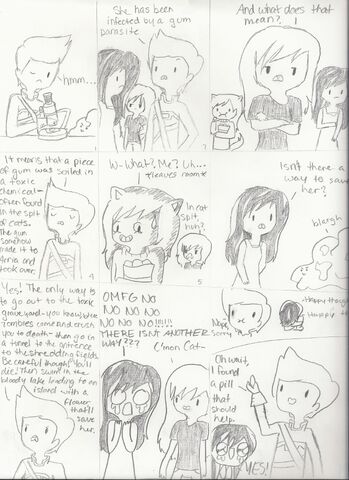 hmm...
She has been
infected by a gum
parasite.
1
2
And what does that
mean?
3
It means that a piece
of gum was soiled in
a toxic
chemical-
often found
in the spit
of cats.
The gum
somehow
made it to
and
took over.
4
W-What? Me? Uh...
*leaves room*
In cat
spit,
huh?
5
Isn't there a
way to save
her?
blargh
6
Yes! The only way is
to go out to the toxic
graveyard-you know, where
zombies come and crush
you to death- then go in
a tunnel to the entrance
to the shredding fields.
Be careful though! You'll
die! Then swim in the
bloody lake leading to an
island with a
flower
that'll
save
her.
OMFG NO
NO NO NO
NO NO NO!!!!!
THERE ISN'T ANOTHER
WAY???
Nope,
sorry.
Happy thoughts
Happy th
C'mon Cat-
Oh wait,
I found
a pill
that
should
help.
YES!